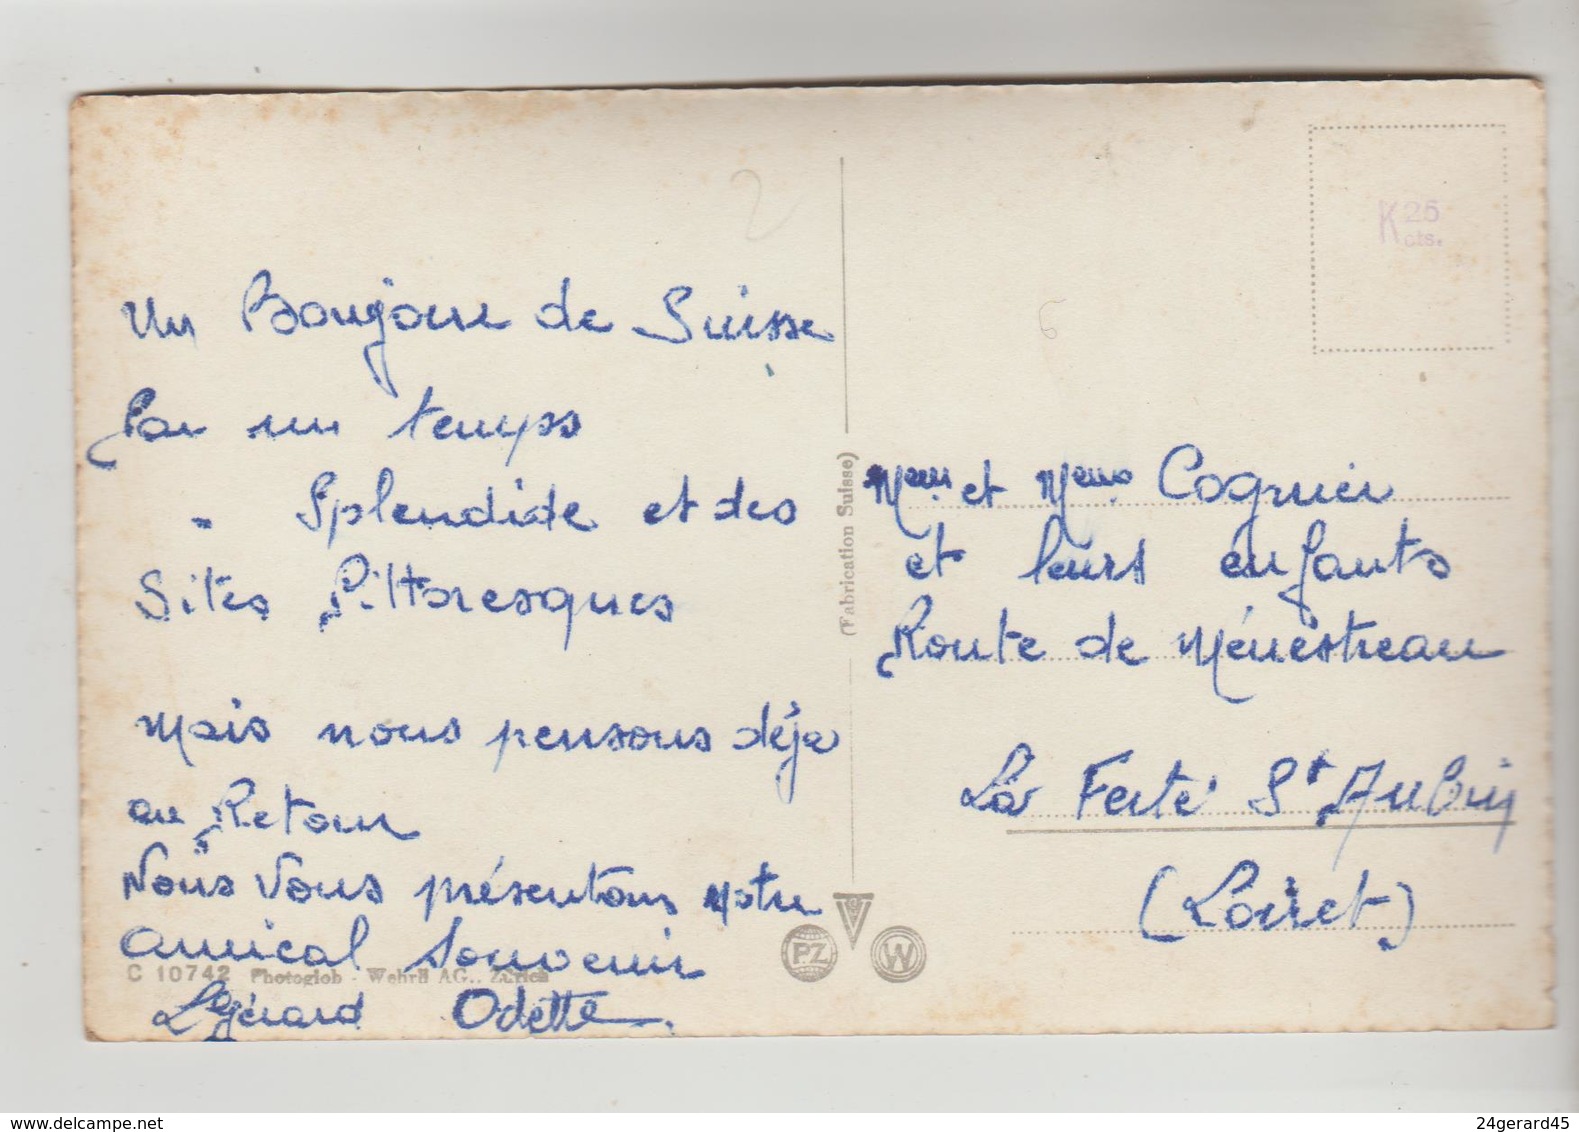 Un Bonjour de Suisse
Par un temps
Splendide et des
Sites Pittoresques
Mais nous pensons déja
au Retour
Nous Vous présentons notre
amical Souvenir
Gérard Odette
C 10742 Photoglob - Wehrli AG., Zürich
(Fabrication Suisse)
PZ
W
K 25
cts.
2
6
et Cognier
et leurs enfants
Route de Ménestreau
La Ferté St Aubin
(Loiret)
delcampe.net
24gerard45